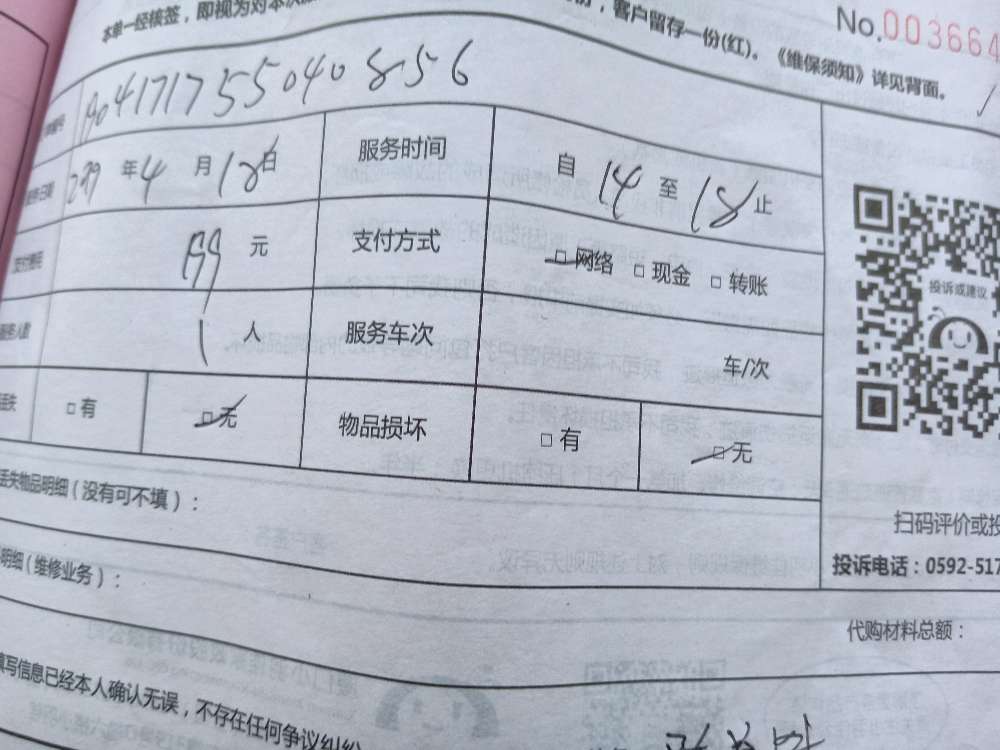 本单一经核签，即视为对本次
，客户留存一份(红)。《维保须知》详见背面。
No.003664
190417175504 0856
年4月18日
服务时间
自14至18止
199元
支付方式
□网络 □现金 □转账
投诉或建议
1人
服务车次
车/次
丢失
□有
□无
物品损坏
□有
□无
丢失物品明细（没有可不填）：
扫码评价或投
投诉电话：0592-517
明细（维修业务）：
代购材料总额：
填写信息已经本人确认无误，不存在任何争议纠纷